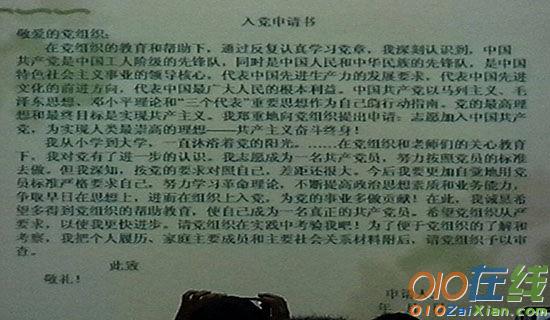 入党申请书
敬爱的党组织:
在党组织的教育和帮助下,通过反复认真学习党章,我深刻认识到,中国
共产党是中国工人阶级的先锋队,同时是中国人民和中华民族的先锋队,是中国
特色社会主义事业的领导核心,代表中国先进生产力的发展要求,代表中国先进
文化的前进方向,代表中国最广大人民的根本利益。中国共产党以马列主义、毛
泽东思想、邓小平理论和“三个代表”重要思想作为自己的行动指南。党的最高理
想和最终目标是实现共产主义。我郑重地向党组织提出申请:志愿加入中国共产
党,为实现人类最崇高的理想——共产主义奋斗终身!
我从小学到大学,一直沐浴着党的阳光。……在党组织和老师们的关心教育
下,我对党有了进一步的认识。我志愿成为一名共产党员,努力按照党员的标准
去做。但我深知,按党的要求对照自己,差距还很大。今后我要更加自觉地用党
员标准严格要求自己,努力学习革命理论,不断提高政治思想素质和业务能力,
争取早日在思想上,进而在组织上入党,为党的事业多做贡献!在此,我诚恳希
望多得到党组织的帮助教育,使自己成为一名真正的共产党员。希望党组织从严
要求,以使我更快进步。请党组织在实践中考验我吧!为了便于党组织的了解和
考察,我把个人履历、家庭主要成员和主要社会关系材料附后,请党组织予以审
查。
此致
敬礼!
申请人
年 月
010在线
010ZaiXian.com